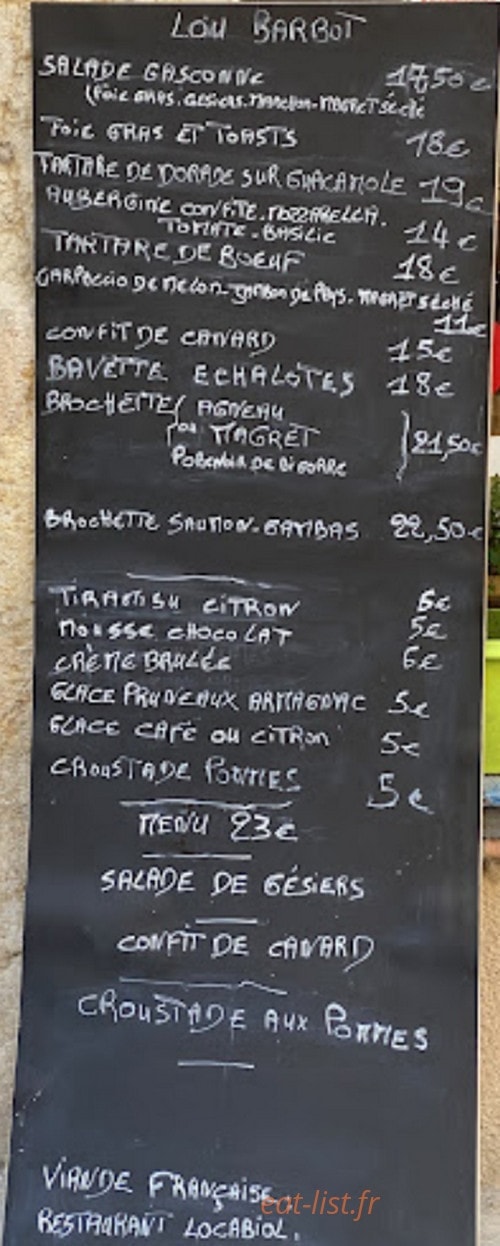 LOU BARBOT
SALADE GASCONNE 17,50€
(FOIE GRAS. GÉSIERS. MANCHON. MAGRET SÉCHÉ
FOIE GRAS ET TOASTS 18€
TARTARE DE DORADE SUR GUACAMOLE 19€
AUBERGINE CONFITE. MOZZARELLA.
TOMATE. BASILIC 14€
TARTARE DE BOEUF 18€
CARPACCIO DE MELON. JAMBON DE PAYS. MAGRET SÉCHÉ
11€
CONFIT DE CANARD 15€
BAVETTE ECHALOTES 18€
BROCHETTE ( AGNEAU
ou MAGRET 21,50€
PORC NOIR DE BIGORRE
BROCHETTE SAUMON-GAMBAS 22,50€
TIRAMISU CITRON 6€
MOUSSE CHOCOLAT 5€
CRÈME BRULÉE 6€
GLACE PRUNEAUX ARMAGNAC 5€
GLACE CAFÉ OU CITRON 5€
CROUSTADE POMMES 5€
MENU 23€
SALADE DE GÉSIERS
CONFIT DE CANARD
CROUSTADE AUX POMMES
VIANDE FRANÇAISE.
eat-list.fr
RESTAURANT LOCABIOL.